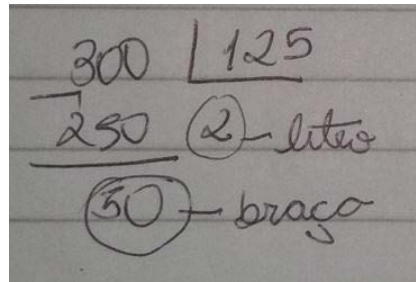 300 125
250 2 - litro
50 - braço